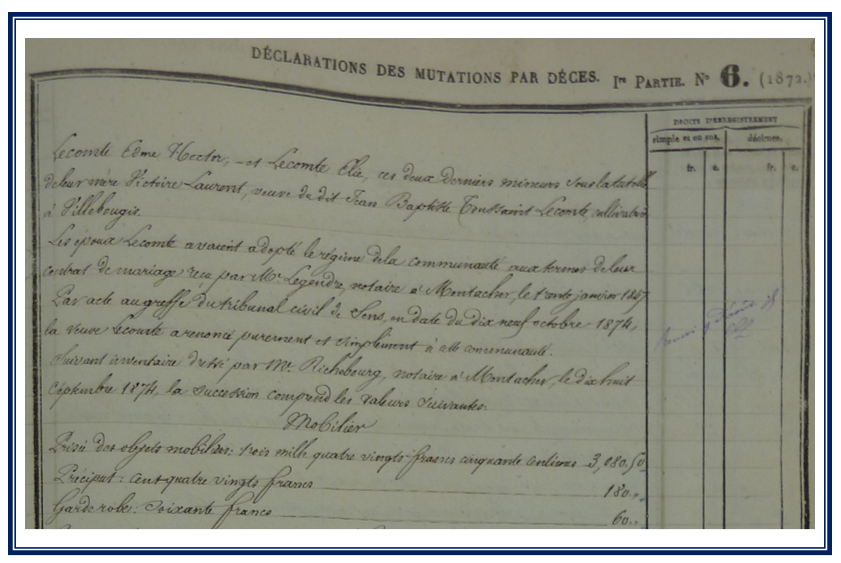 DÉCLARATIONS DES MUTATIONS PAR DÉCES. Ire PARTIE. No 6. (1872.)
DROITS D'ENREGISTREMENT
simple et en sus. décimes.
fr. c. fr. c.
Lecomte Edme Hector, - et Lecomte Elie, ces deux derniers mineurs sous la tutelle
de leur mère Victoire Laurent, veuve du dit Jean Baptiste Toussaint Lecomte, cultivatrice
à Villebougis.
Les époux Lecomte avaient adopté le régime de la communauté aux termes de leur
contrat de mariage reçu par Me Legendre, notaire à Montacher, le trente janvier 1847.
Par acte au greffe du tribunal civil de Sens, en date du dix neuf octobre 1874,
la veuve Lecomte a renoncé purement et simplement à cette communauté.
Suivant inventaire dressé par Me Richebourg, notaire à Montacher, le dix huit
Septembre 1874, la succession comprend les valeurs suivantes:
Mobilier
Prisée des objets mobiliers: trois mille quatre vingts francs cinquante centimes 3,080.50
Préciput: cent quatre vingts francs 180..
Garde robe: Soixante francs 60..